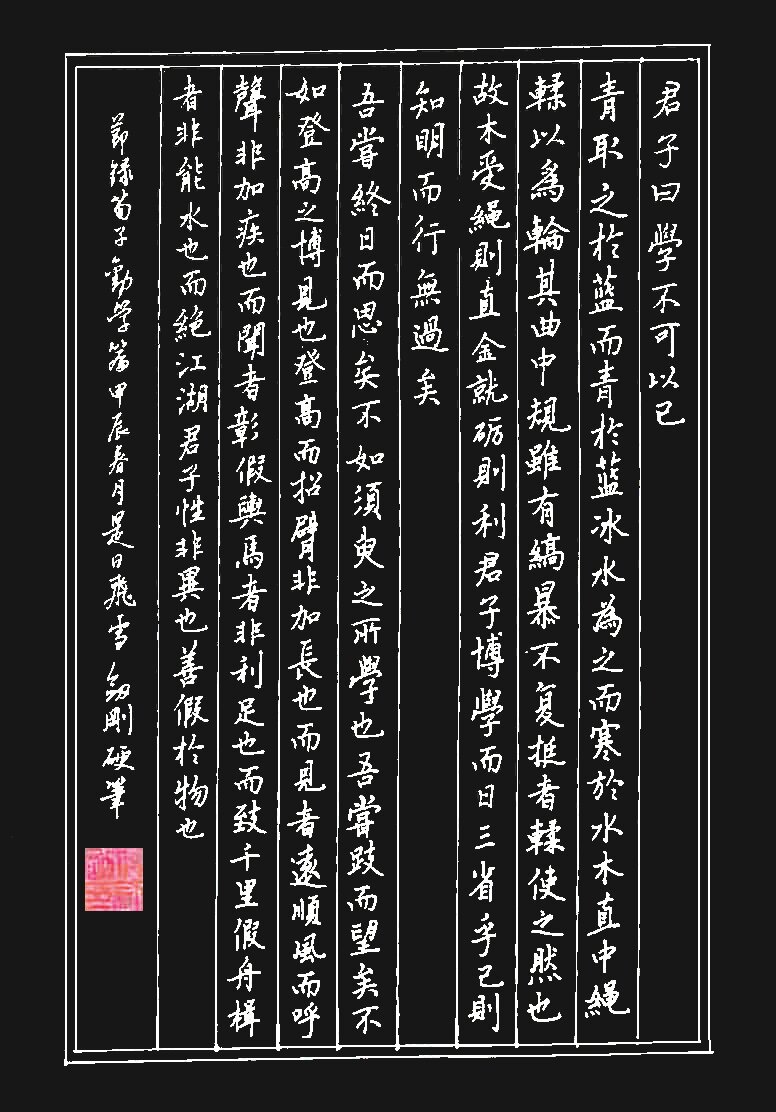 君子曰學不可以已
青取之於藍而青於藍冰水為之而寒於水木直中繩
輮以為輪其曲中規雖有縞暴不复挺者輮使之然也
故木受繩則直金就砺則利君子博學而日三省乎己則
知明而行無過矣
吾嘗終日而思矣不如須臾之所學也吾嘗跂而望矣不
如登高之博見也登高而招臂非加長也而見者遠順風而呼
聲非加疾也而聞者彰假輿馬者非利足也而致千里假舟楫
者非能水也而絕江湖君子性非異也善假於物也
節録荀子勸學篇甲辰春月是日飛雪剛硬筆